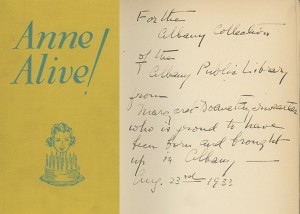 Anne
Alive!
For the
Albany Collection
of the
Albany Public Library
from
Margaret Doane
who is proud to have
been born and brought
up in Albany —
Aug. 23rd 1933